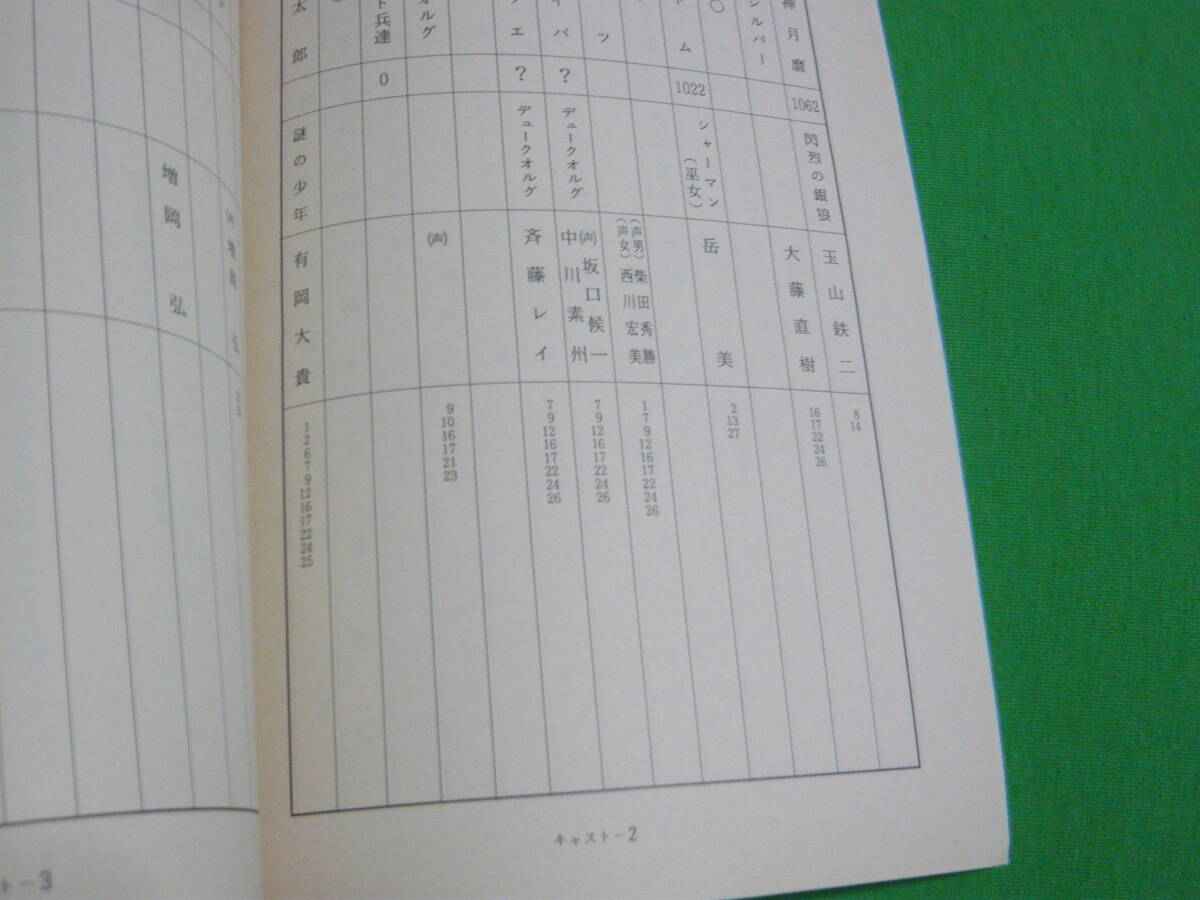 神月麿
1062
閃烈の銀狼
玉山鉄二
8
14
シルバー
大藤直樹
16
17
22
24
26
ム
1022
シャーマン
（巫女）
岳美
2
13
27
ツ
（声男）柴田秀勝
（声女）西川宏美
1
7
9
12
16
17
22
24
26
イバ
？
デュークオルグ
（声）坂口候一
中川素州
7
9
12
16
17
22
24
26
エ
？
デュークオルグ
斉藤レイ
7
9
12
16
17
22
24
26
オルグ
（声）
9
10
16
17
21
23
ト兵達
0
太郎
謎の少年
有岡大貴
1
2
6
7
9
12
16
17
22
24
25
キャスト－2
増岡弘
ト－3